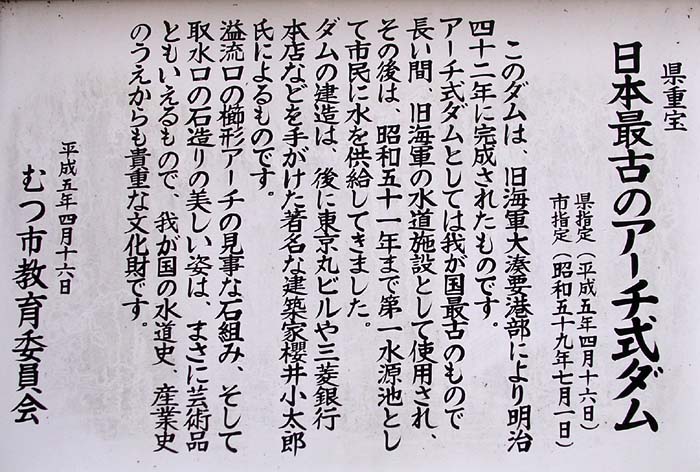 県重宝
日本最古のアーチ式ダム
県指定（平成五年四月十六日）
市指定（昭和五十九年七月一日）
このダムは、旧海軍大湊要港部により明治
四十二年に完成されたものです。
アーチ式ダムとしては我が国最古のもので
長い間、旧海軍の水道施設として使用され、
その後は、昭和五十一年まで第一水源池とし
て市民に水を供給してきました。
ダムの建造は、後に東京丸ビルや三菱銀行
本店などを手がけた著名な建築家櫻井小太郎
氏によるものです。
溢流口の櫛形アーチの見事な石組み、そして
取水口の石造りの美しい姿は、まさに芸術品
ともいえるもので、我が国の水道史、産業史
のうえからも貴重な文化財です。
平成五年四月十六日
むつ市教育委員会